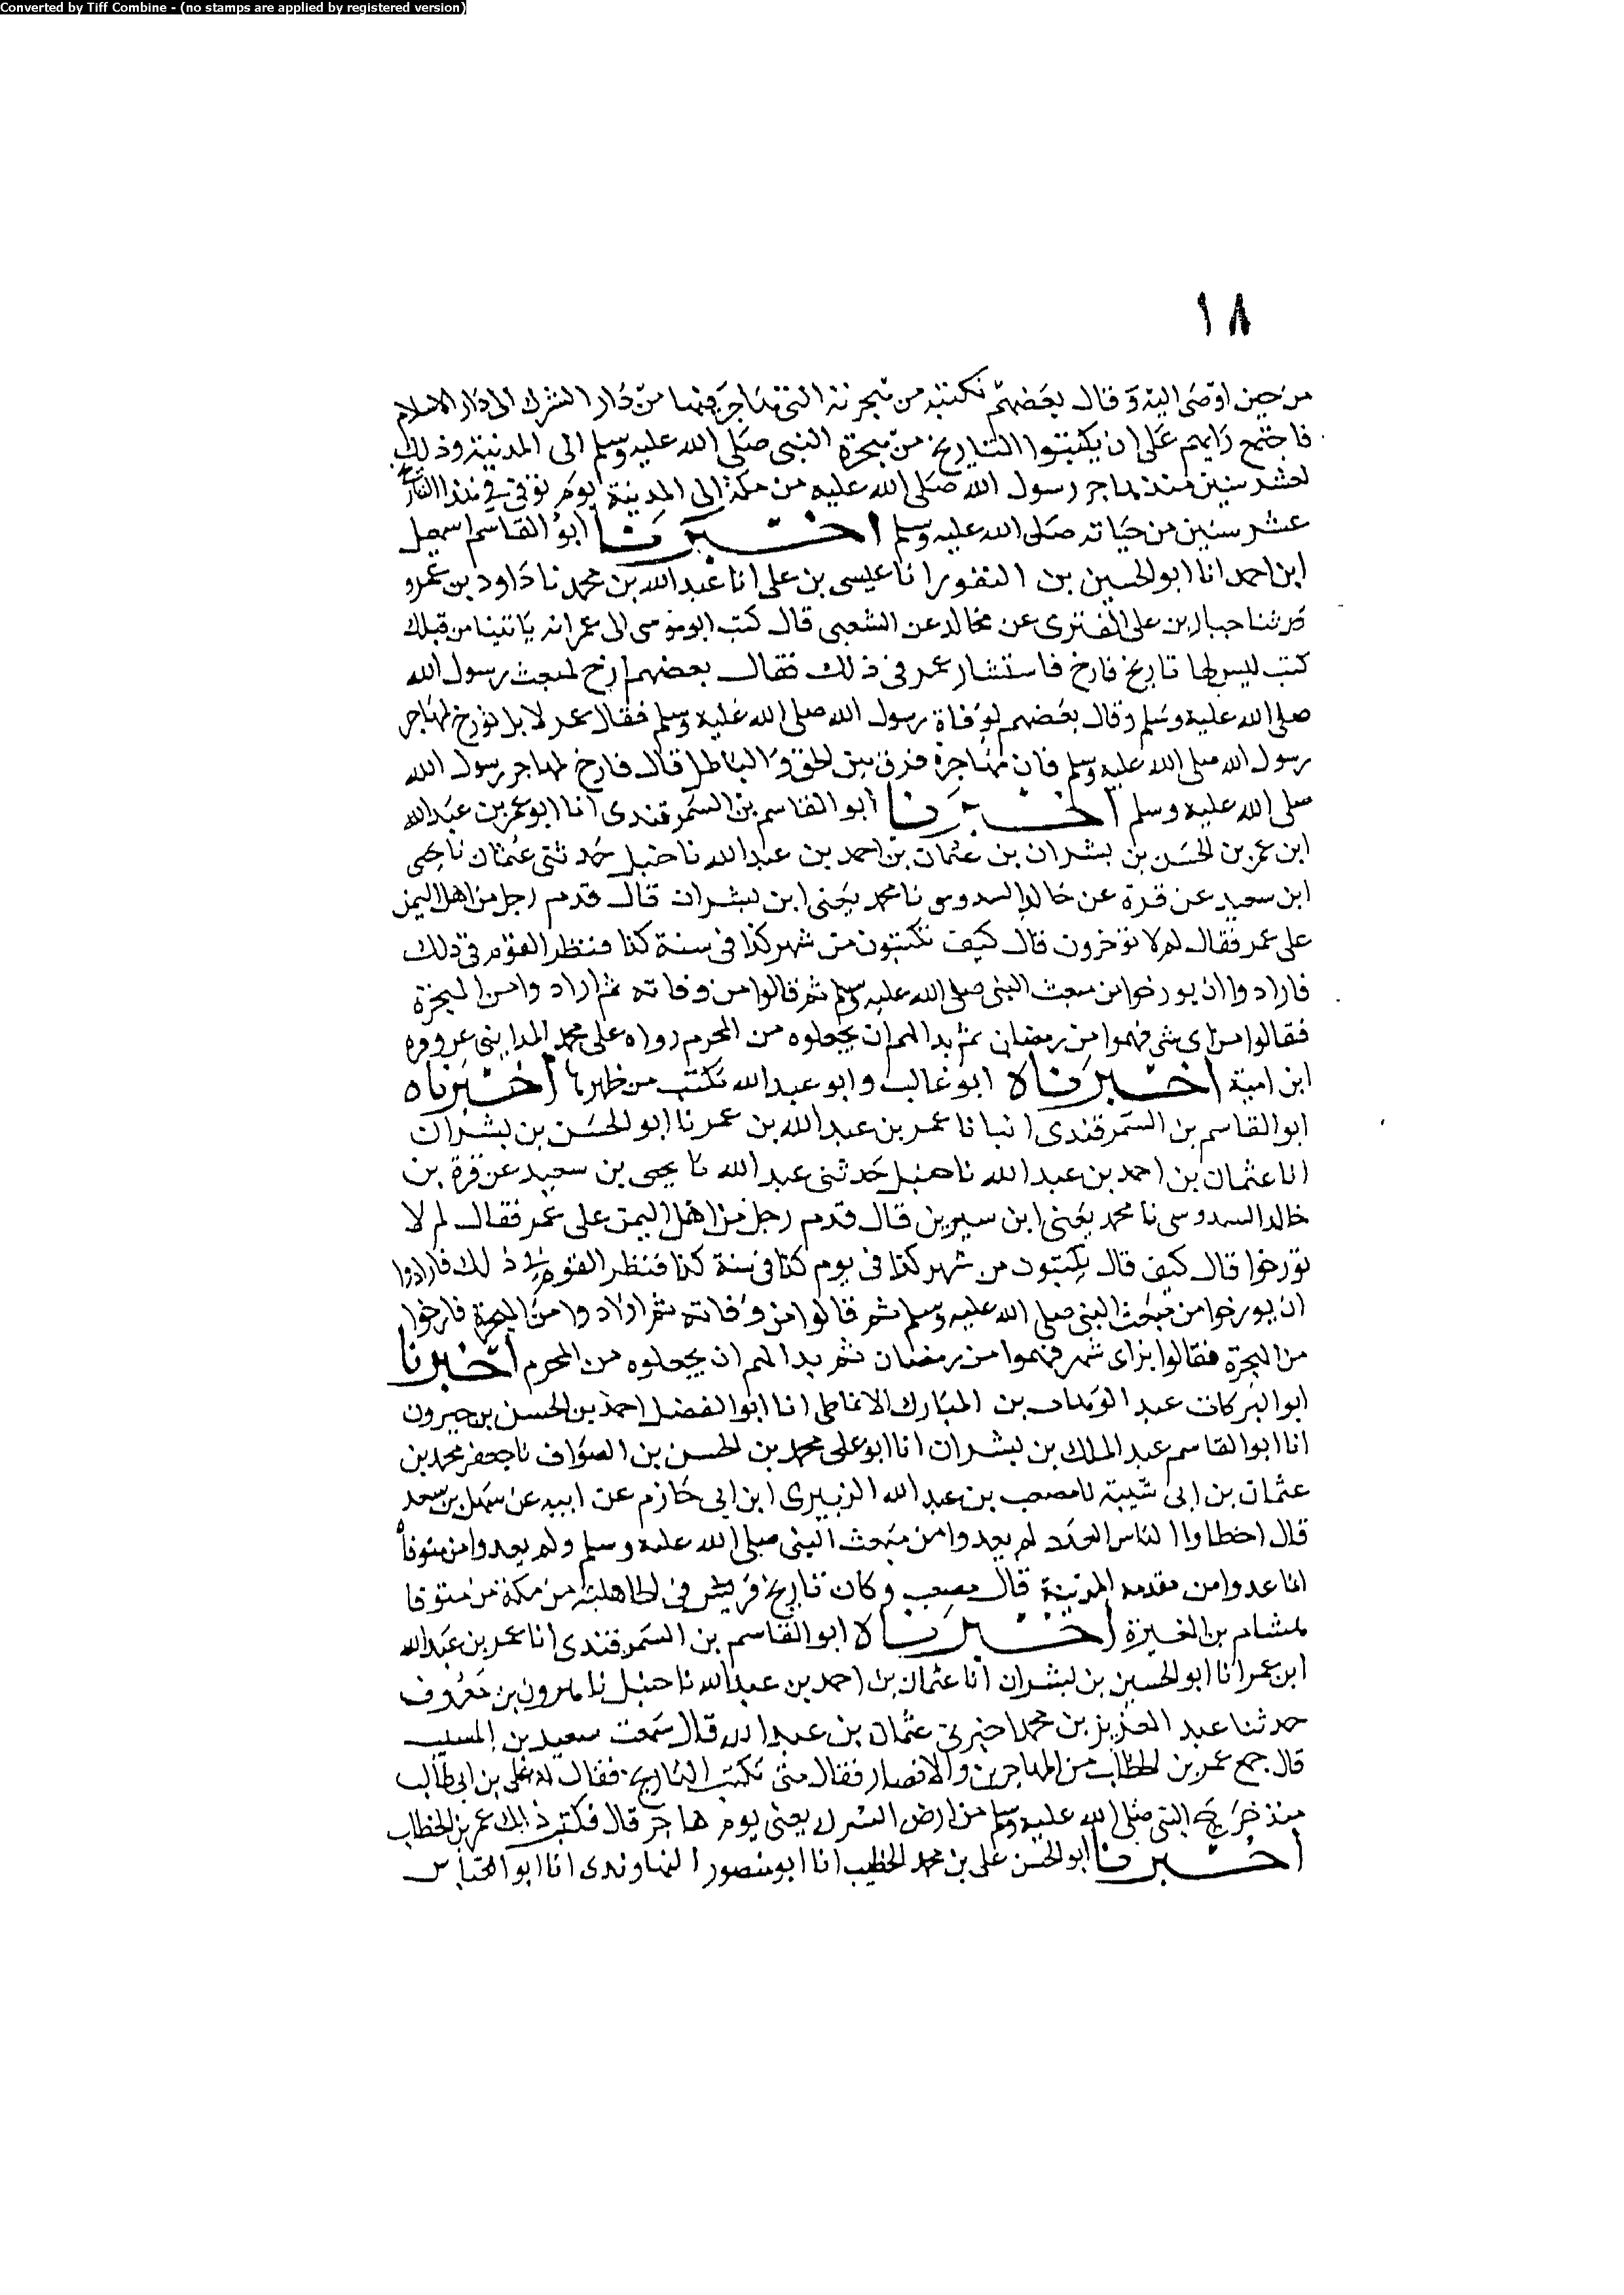 Converted by Tiff Combine - (no stamps are applied by registered version)
١٨
من حين اوصى اليه وقال بعضهم نكتبه من هجرته التى هاجر فيها من دار الشرك الى دار الاسلام
فاجتمع رايهم على ان يكتبوا التاريخ من هجرة النبى صلى الله عليه وسلم الى المدينة وذلك
لعشر سنين منذ هاجر رسول الله صلى الله عليه من مكة الى المدينة يوم توفى فى هذا التاريخ
عشر سنين من حياته صلى الله عليه وسلم اخبرنا ابو القاسم اسمعيل
ابن احمد انا ابو الحسين بن النقور انا عيسى بن على انا عبد الله بن محمد نا داود بن عمرو
حدثنا حبان بن على العنزى عن مجالد عن الشعبى قال كتب ابو موسى الى عمر انه ياتينا من قبلك
كتب ليس لها تاريخ فارخ فاستشار عمر فى ذلك فقال بعضهم ارخ لمبعث رسول الله
صلى الله عليه وسلم وقال بعضهم لوفاة رسول الله صلى الله عليه وسلم فقال عمر لا بل نورخ لمهاجر
رسول الله صلى الله عليه وسلم فان مهاجرة فرق بين الحق والباطل قال فارخ لمهاجر رسول الله
صلى الله عليه وسلم اخبرنا ابو القاسم بن السمرقندى انا ابو عمر بن عبد الله
ابن عمر بن الحسن بن بشران بن عثمان بن احمد بن عبد الله نا حنبل حدثنى عثمان نا يحيى
ابن سعيد عن قرة عن خالد السدوسى نا محمد يعنى ابن بشران قال قدم رجل من اهل اليمن
على عمر فقال لم لا تؤخرون قال كيف تكتبون من شهر كذا فى سنة كذا فنظر القوم فى ذلك
فارادوا ان يورخوا من مبعث النبى صلى الله عليه وسلم ثم قالوا من وفاته ثم ارادوا من الهجرة
فقالوا من اى شى فهموا من رمضان ثم بدا لهم ان يجعلوه من المحرم رواه على محمد المداينى عن قرة
ابن امية اخبرناه ابو غالب وابو عبد الله تكتب من ظهرها اخبرناه
ابو القاسم بن السمرقندى انبانا عمر بن عبد الله بن عمر نا ابو الحسن بن بشران
انا عثمان بن احمد بن عبد الله نا حنبل حدثنى عبد الله نا يحيى بن سعيد عن قرة بن
خالد السدوسى نا محمد يعنى ابن سيرين قال قدم رجل من اهل اليمن على عمر فقال لم لا
تورخوا قال كيف قال يكتبون من شهر كذا فى يوم كذا فى سنة كذا فنظر القوم فى ذلك فارادوا
ان يورخوا من مبعث النبى صلى الله عليه وسلم ثم قالوا من وفاته ثم ارادوا من الهجرة فارخوا
من الهجرة فقالوا من اى شهر فهموا من رمضان ثم بدا لهم ان يجعلوه من المحرم اخبرنا
ابو البركات عبد الوهاب بن المبارك الانماطى انا ابو الفضل احمد بن الحسن بن خيرون
انا ابو القاسم عبد الملك بن بشران انا ابو على محمد بن الحسن بن الصواف نا جعفر محمد بن
عثمان بن ابى شيبة نا مصعب بن عبد الله الزبيرى ابن ابى حازم عن ابيه عن سهل بن سعد
قال اخطاوا الناس العدد لم يعدوا من مبعث النبى صلى الله عليه وسلم ولم يعدوا من متوفاه
انما عدوا من مقدمه المدينة قال مصعب وكان تاريخ قريش فى الجاهلية من مكة من متوفا
هشام بن المغيرة اخبرناه ابو القاسم بن السمرقندى انا عمر بن عبد الله
ابن عمر انا ابو الحسين بن بشران انا عثمان بن احمد بن عبد الله نا حنبل نا هرون بن معروف
حدثنا عبد العزيز بن محمد اخبرنى عثمان بن عبد الله قال سمعت سعيد بن المسيب
قال جمع عمر بن الخطاب من المهاجرين والانصار فقال متى نكتب التاريخ فقال له على بن ابى طالب
منذ خرج النبى صلى الله عليه وسلم من ارض الشرك يعنى يوم هاجر قال فكتب ذلك عمر بن الخطاب
اخبرنا ابو الحسن على بن محمد الخطيب انا ابو منصور النهاوندى انا ابو العباس